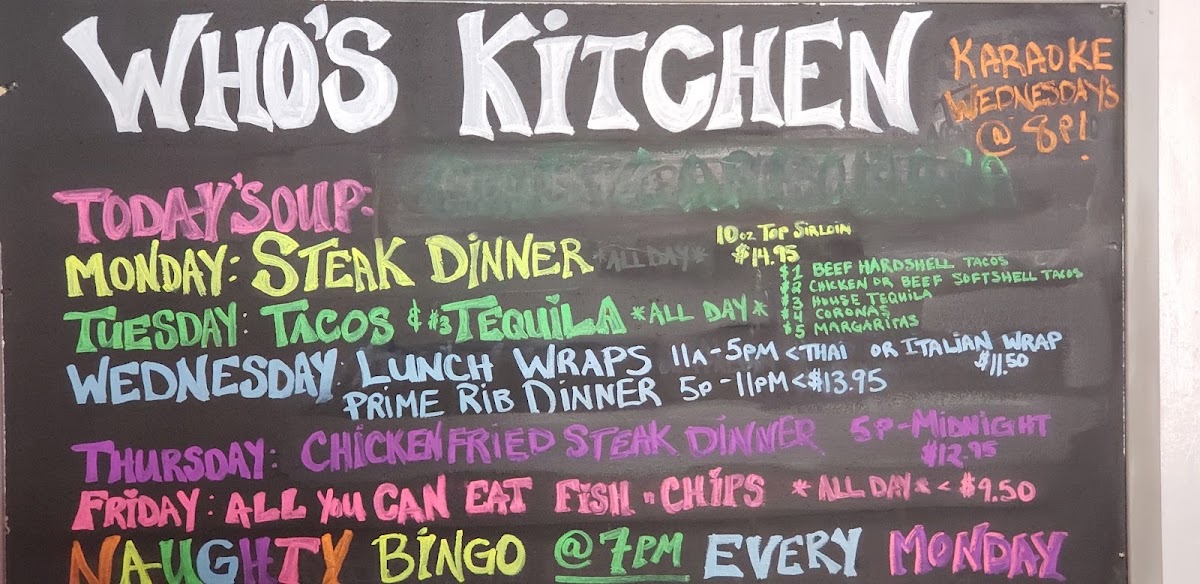 WHO'S KITCHEN
KARAOKE
WEDNESDAY'S
@ 8P!
TODAY'S SOUP:
MONDAY: STEAK DINNER *ALL DAY*
10oz TOP SIRLOIN
$14.95
TUESDAY: TACOS & #3 TEQUILA *ALL DAY*
$1 BEEF HARDSHELL TACOS
$2 CHICKEN OR BEEF SOFTSHELL TACOS
$3 HOUSE TEQUILA
$4 CORONAS
$5 MARGARITAS
WEDNESDAY: LUNCH WRAPS 11A-5PM <THAI OR ITALIAN WRAP
$11.50
PRIME RIB DINNER 5P-11PM <$13.95
THURSDAY: CHICKEN FRIED STEAK DINNER 5P-MIDNIGHT
$12.95
FRIDAY: ALL YOU CAN EAT FISH n CHIPS *ALL DAY* < $9.50
NAUGHTY BINGO @ 7PM EVERY MONDAY